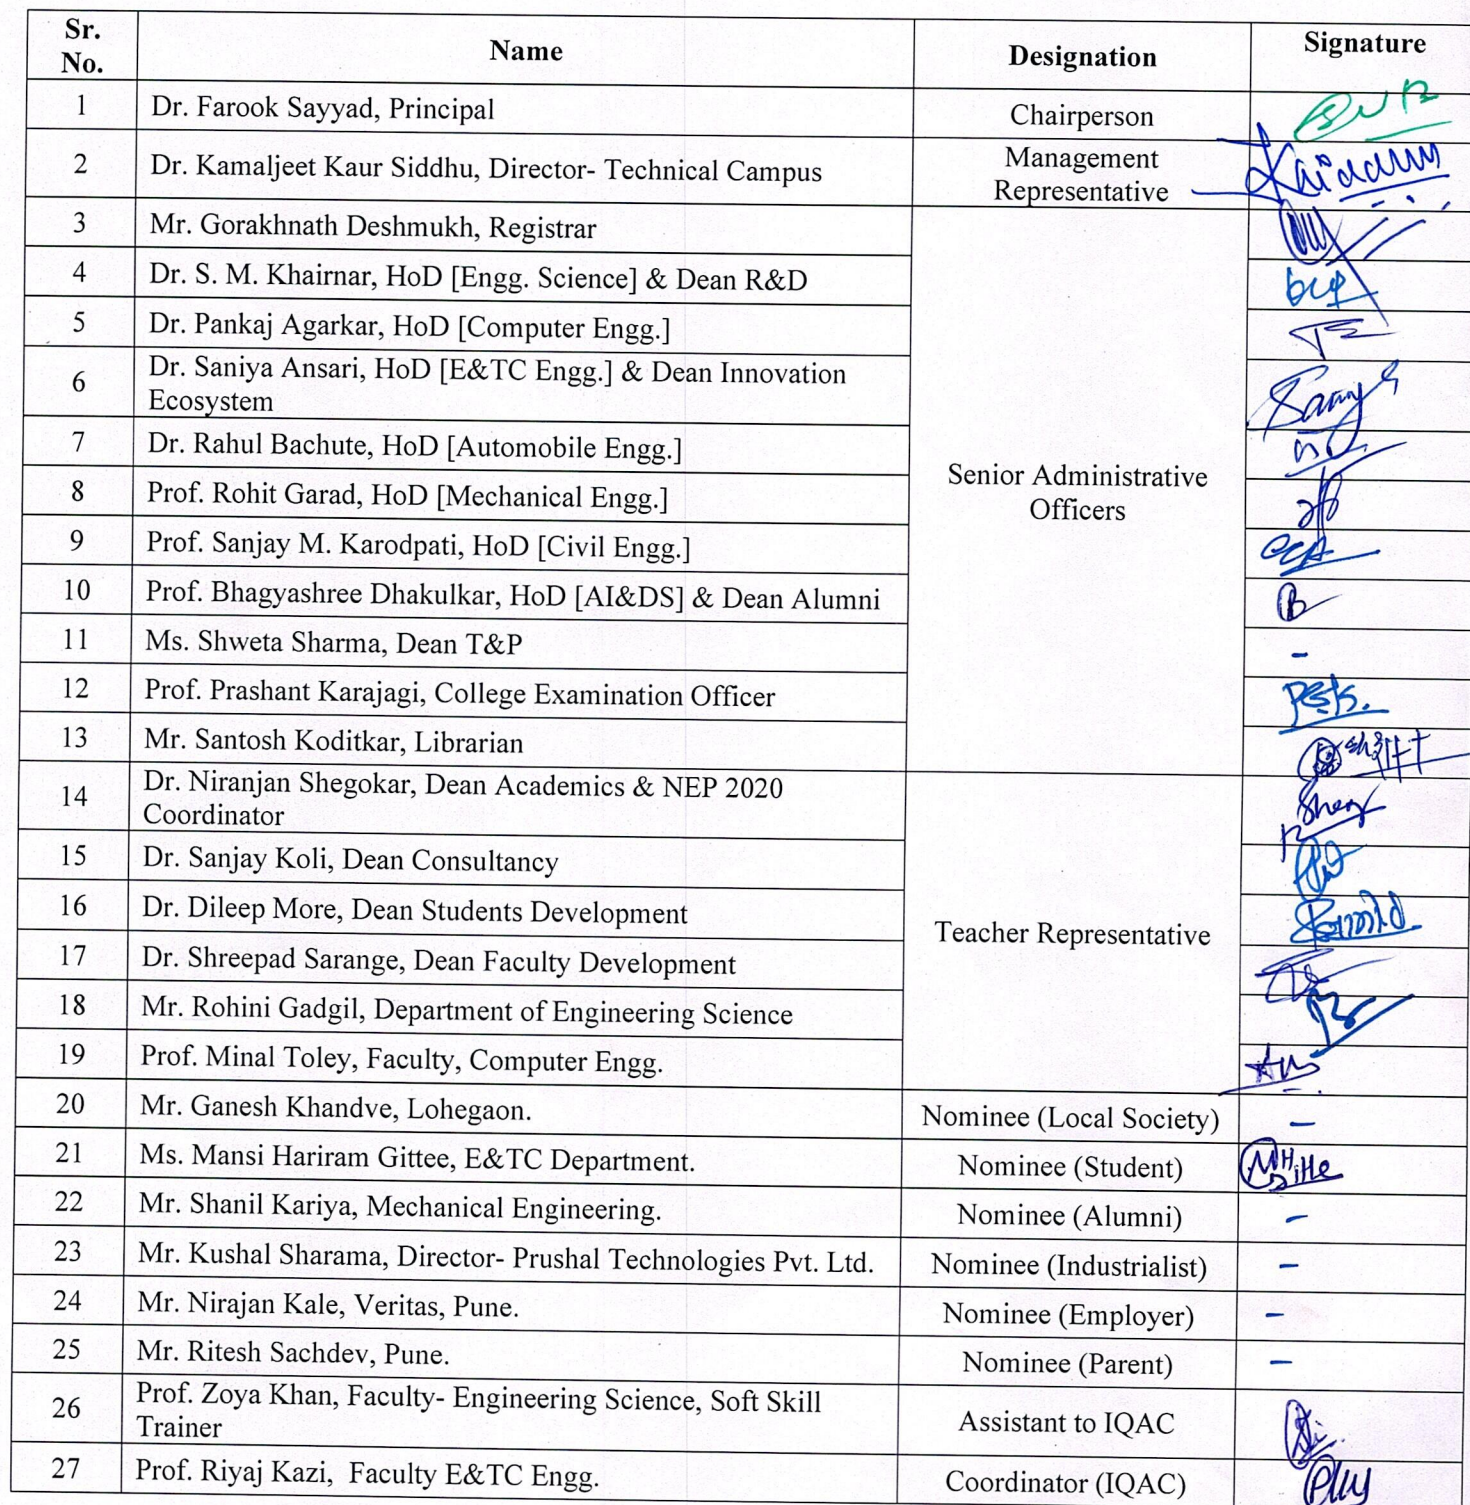 Sr.
No.
Name
Designation
Signature
1
Dr. Farook Sayyad, Principal
Chairperson
2
Dr. Kamaljeet Kaur Siddhu, Director- Technical Campus
Management
Representative
3
Mr. Gorakhnath Deshmukh, Registrar
4
Dr. S. M. Khairnar, HoD [Engg. Science] & Dean R&D
5
Dr. Pankaj Agarkar, HoD [Computer Engg.]
6
Dr. Saniya Ansari, HoD [E&TC Engg.] & Dean Innovation
Ecosystem
7
Dr. Rahul Bachute, HoD [Automobile Engg.]
8
Prof. Rohit Garad, HoD [Mechanical Engg.]
Senior Administrative
Officers
9
Prof. Sanjay M. Karodpati, HoD [Civil Engg.]
10
Prof. Bhagyashree Dhakulkar, HoD [AI&DS] & Dean Alumni
11
Ms. Shweta Sharma, Dean T&P
-
12
Prof. Prashant Karajagi, College Examination Officer
13
Mr. Santosh Koditkar, Librarian
14
Dr. Niranjan Shegokar, Dean Academics & NEP 2020
Coordinator
15
Dr. Sanjay Koli, Dean Consultancy
16
Dr. Dileep More, Dean Students Development
Teacher Representative
17
Dr. Shreepad Sarange, Dean Faculty Development
18
Mr. Rohini Gadgil, Department of Engineering Science
19
Prof. Minal Toley, Faculty, Computer Engg.
20
Mr. Ganesh Khandve, Lohegaon.
Nominee (Local Society)
-
21
Ms. Mansi Hariram Gittee, E&TC Department.
Nominee (Student)
22
Mr. Shanil Kariya, Mechanical Engineering.
Nominee (Alumni)
-
23
Mr. Kushal Sharama, Director- Prushal Technologies Pvt. Ltd.
Nominee (Industrialist)
-
24
Mr. Nirajan Kale, Veritas, Pune.
Nominee (Employer)
-
25
Mr. Ritesh Sachdev, Pune.
Nominee (Parent)
-
26
Prof. Zoya Khan, Faculty- Engineering Science, Soft Skill
Trainer
Assistant to IQAC
27
Prof. Riyaj Kazi, Faculty E&TC Engg.
Coordinator (IQAC)